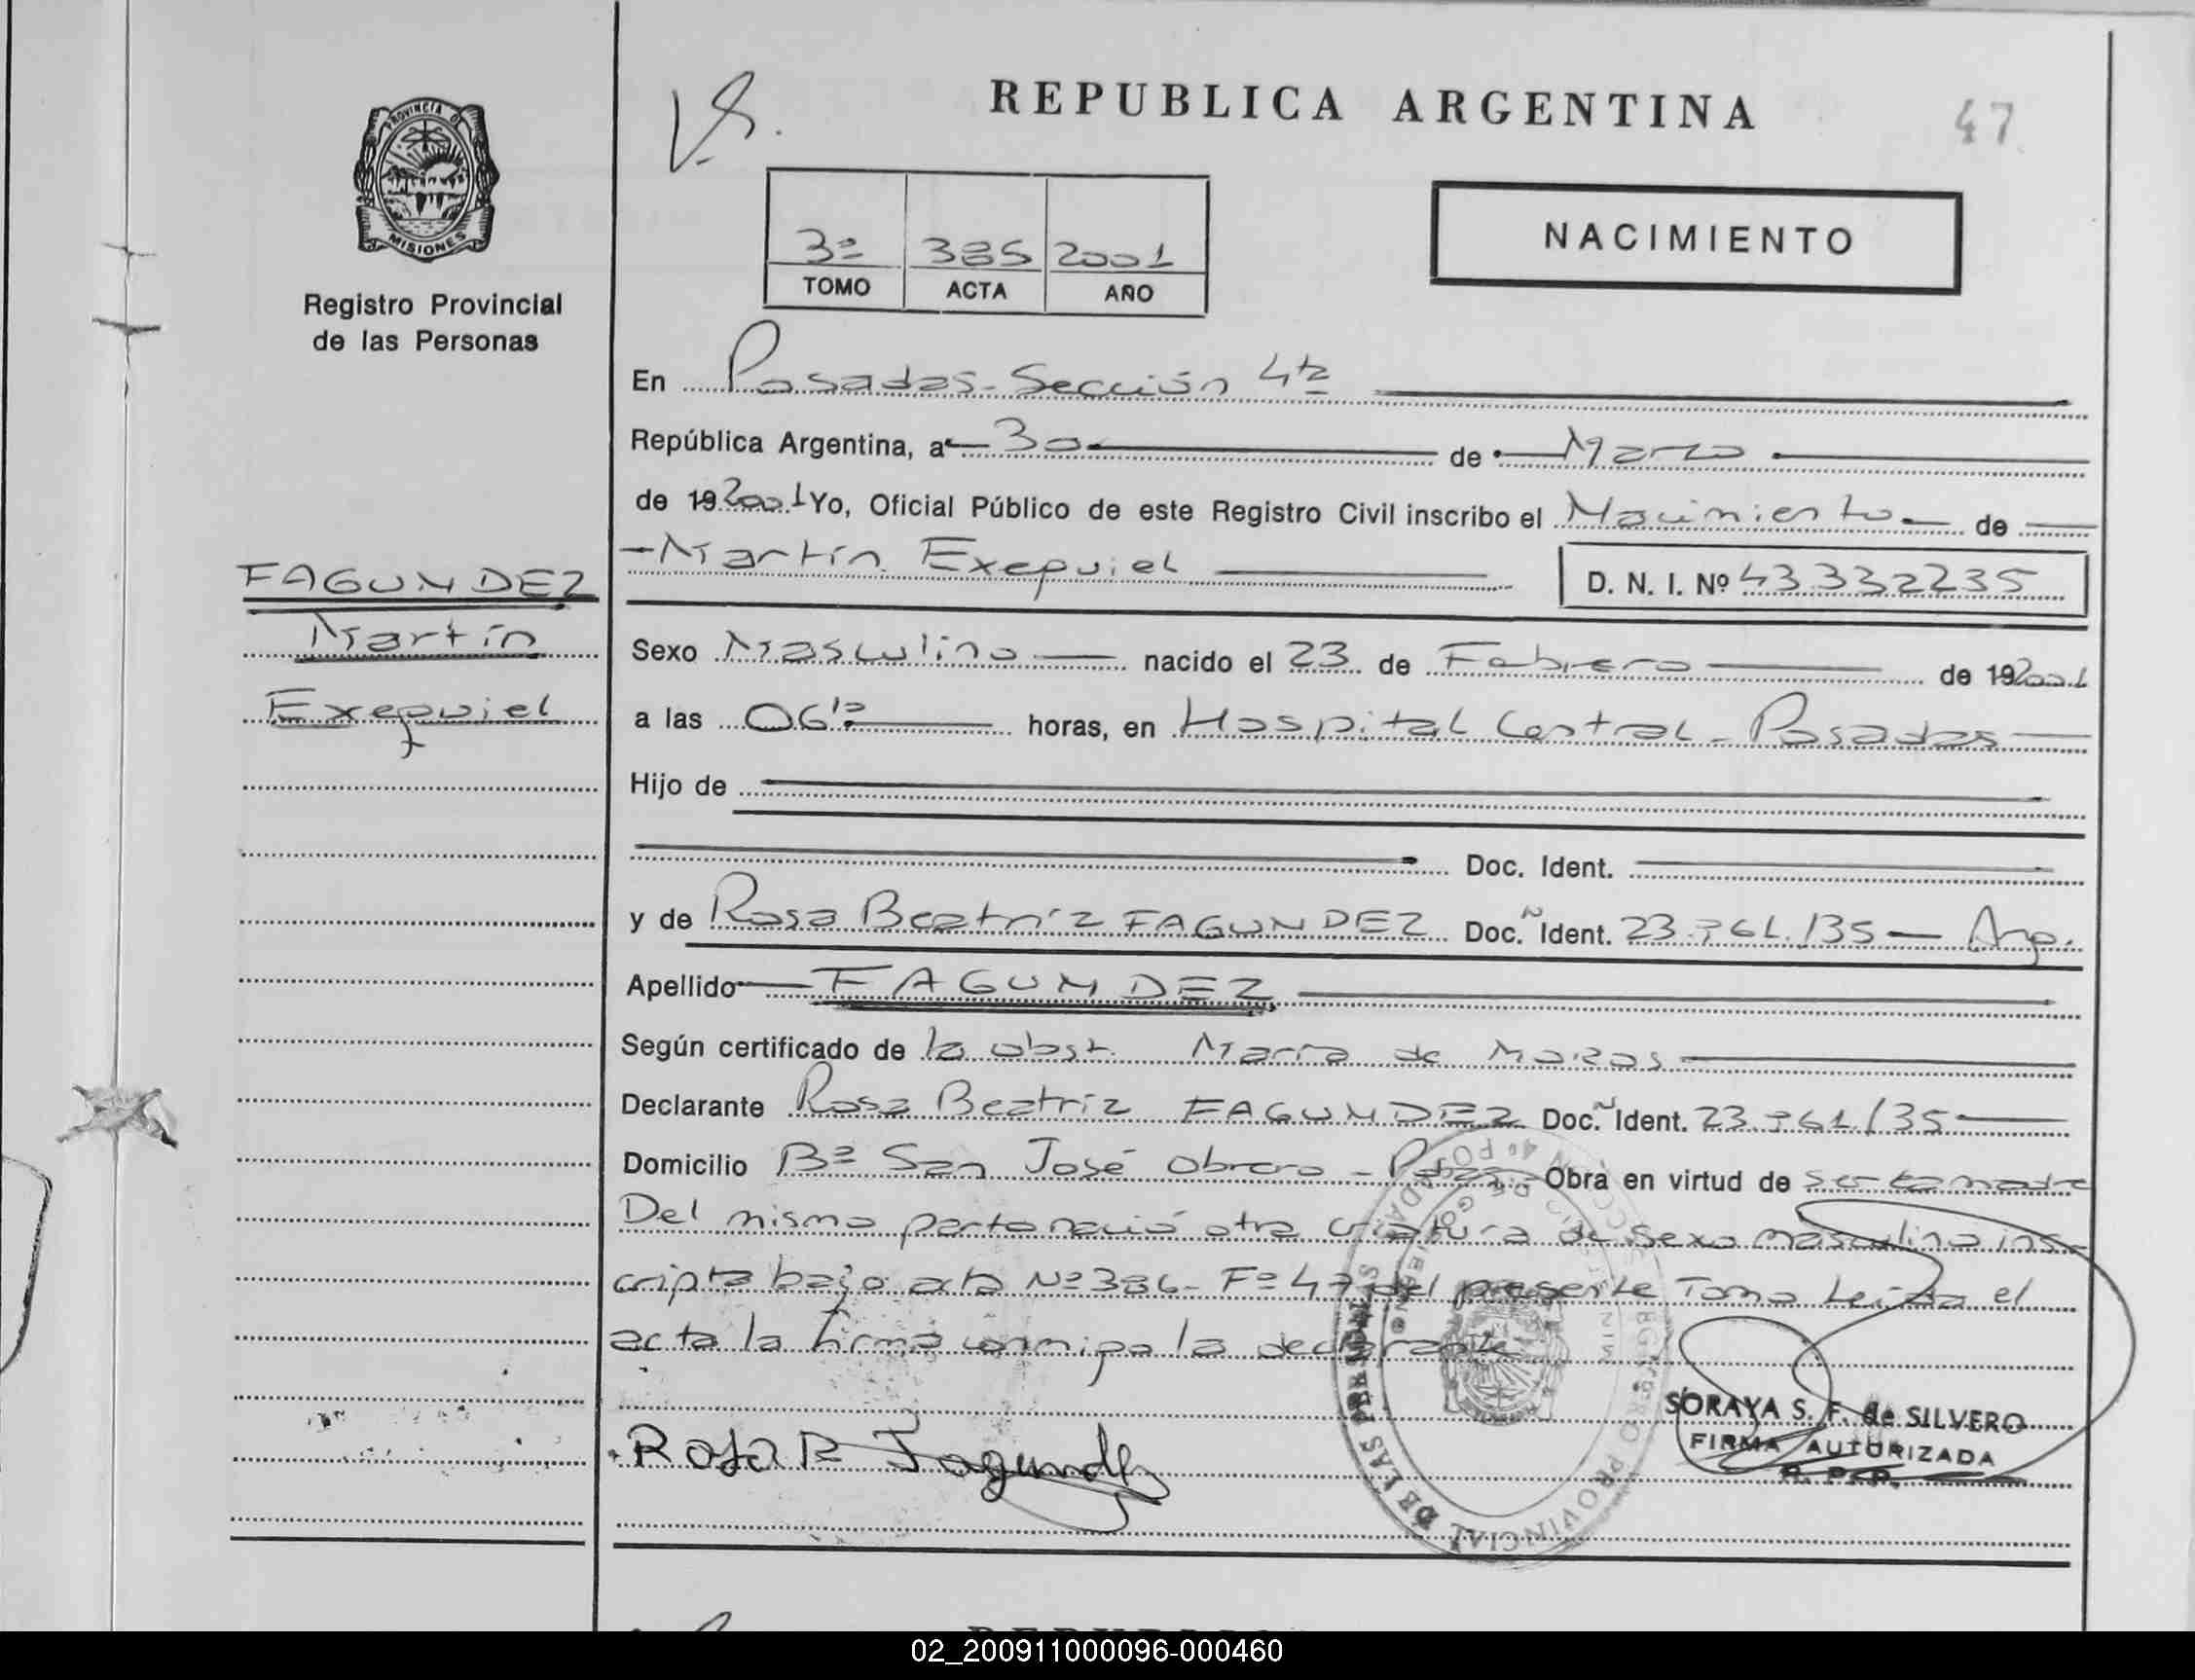 PROVINCIA DE
MISIONES
Registro Provincial
de las Personas
FAGUNDEZ
Martín
Exequiel
REPUBLICA ARGENTINA
47
3ª 385 2001
TOMO ACTA AÑO
NACIMIENTO
En Posadas - Sección 4ta
República Argentina, a 30 de Marzo
de 19 2001 Yo, Oficial Público de este Registro Civil inscribo el Nacimiento de
Martín Exequiel D. N. I. Nº 43.332235
Sexo Masculino nacido el 23 de Febrero de 19 2001
a las 06 10 horas, en Hospital Central - Posadas
Hijo de
Doc. Ident.
y de Rosa Beatríz FAGUNDEZ Doc. Ident. 23.761.135 - Arg.
Apellido FAGUNDEZ
Según certificado de la obst. María de
Declarante Rosa Beatriz FAGUNDEZ Doc. Ident. 23.761/35
Domicilio Bº San José Obrero - Pdas. Obra en virtud de ser la madre
Del mismo parto nació otra criatura de sexo masculino ins
cripta bajo acta Nº 386 - Fº 47 del presente Tomo Leída el
acta la firma conmigo la declarante
Rosa B Fagundez
SORAYA S. F. de SILVERO
FIRMA AUTORIZADA
R. P. P.
REGISTRO PROVINCIAL DE LAS PERSONAS
02_200911000096-000460